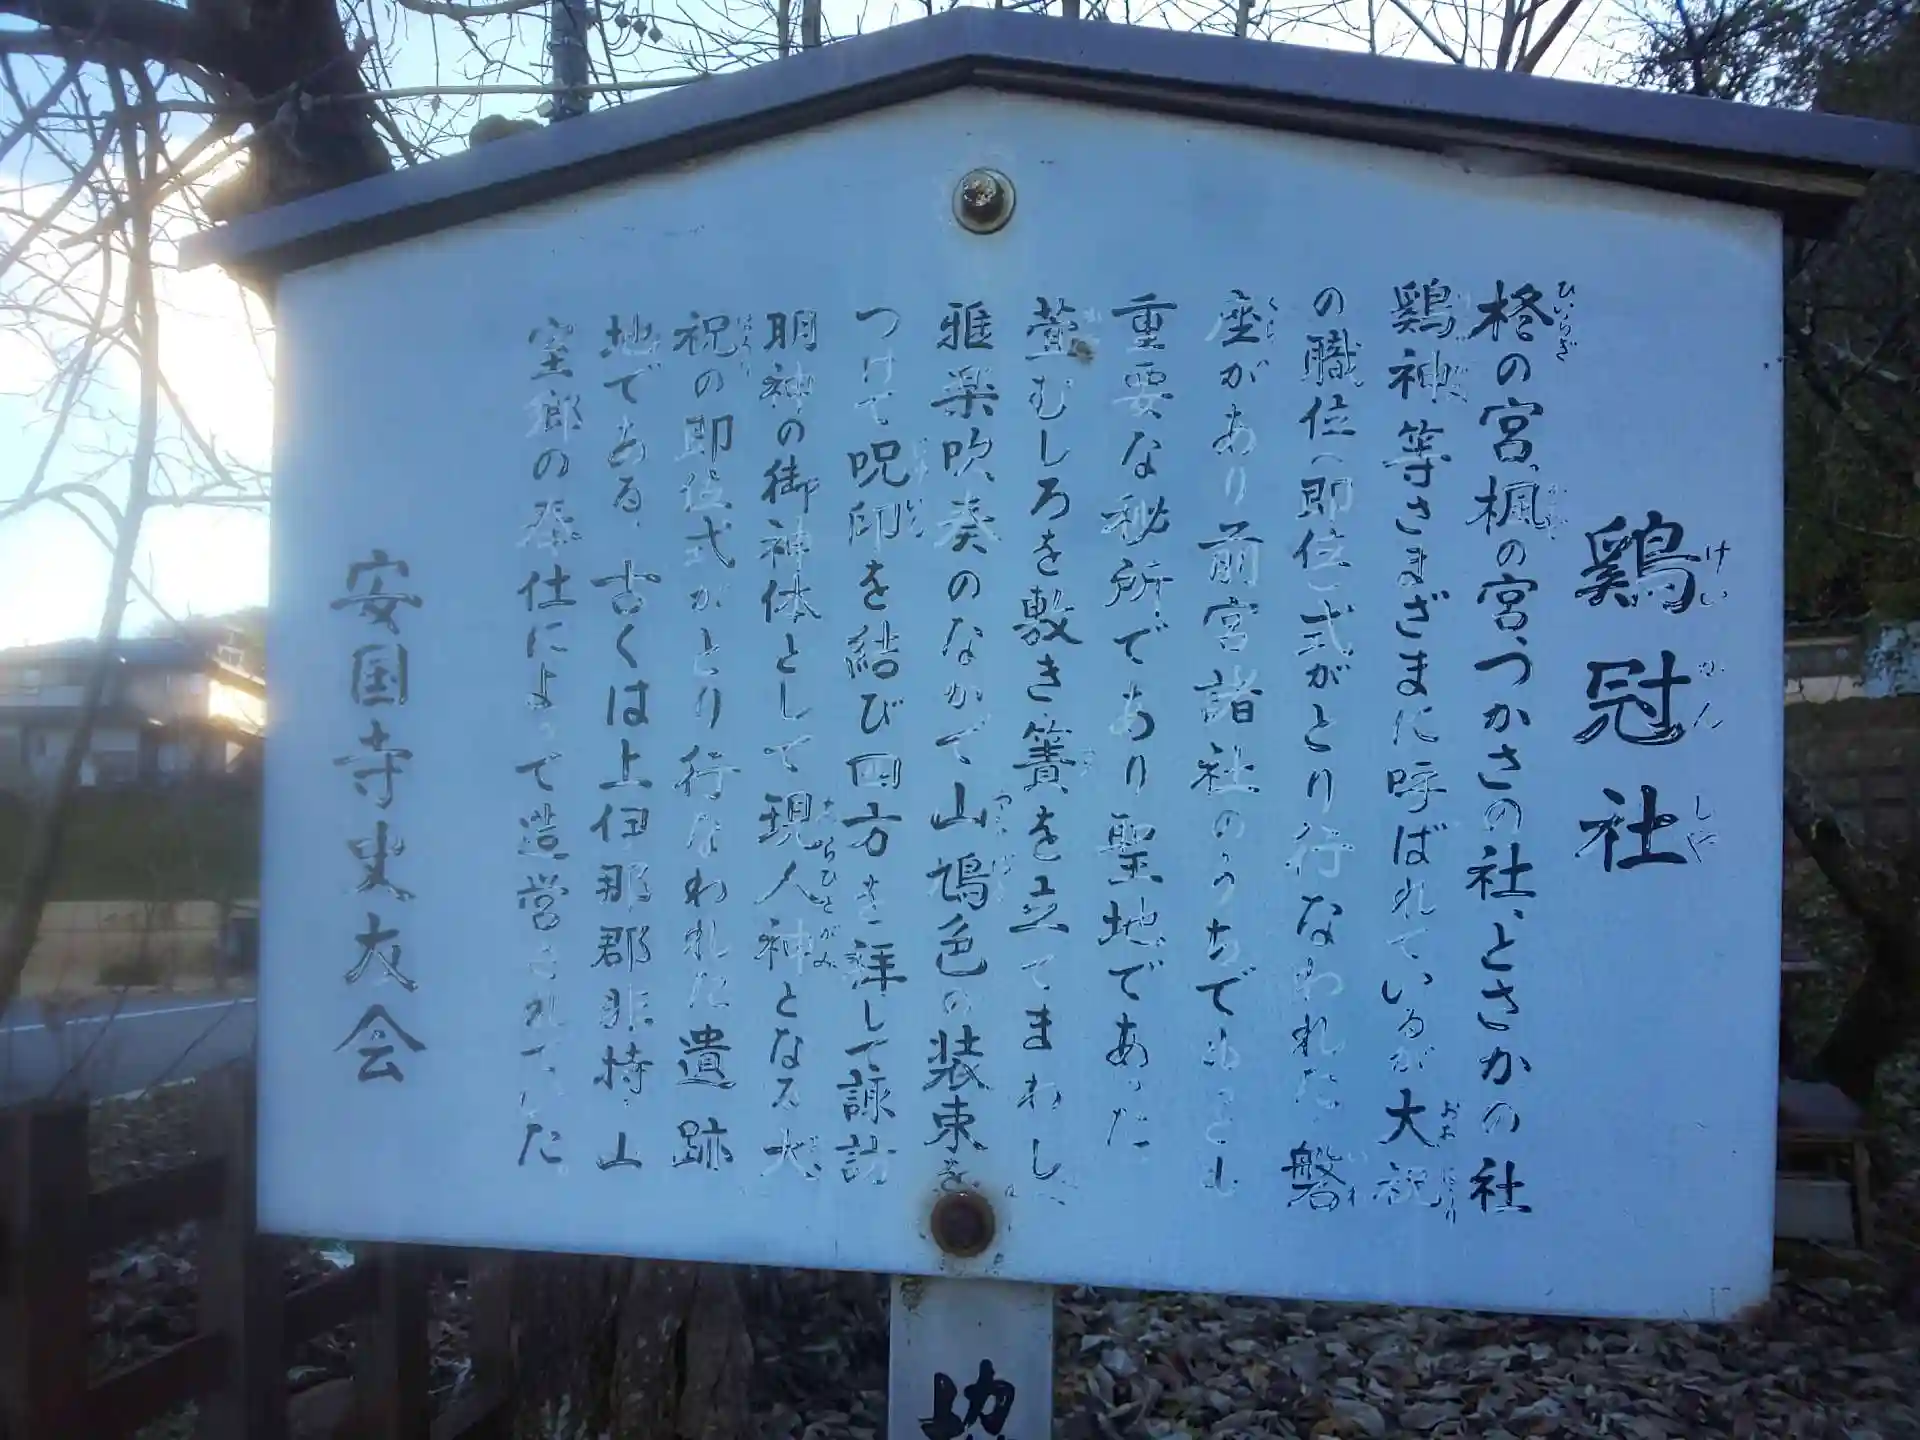 鶏冠社
柊の宮、楓の宮、つかさの社、とさかの社
鶏神等さまざまに呼ばれているが大祝
の職位(即位)式がとり行なわれた、磐
座があり前宮諸社のうちでもっとも
重要な秘所であり聖地であった
萱むしろを敷き簀を立てまわし、
雅楽吹奏のなかで山鳩色の装束を
つけて呪印を結び四方を拝して諏訪
明神の御神体として現人神となる大
祝の即位式がとり行なわれた遺跡
地である、古くは上伊那郡非持、山
室郷の奉仕によって造営されていた。
安国寺史友会